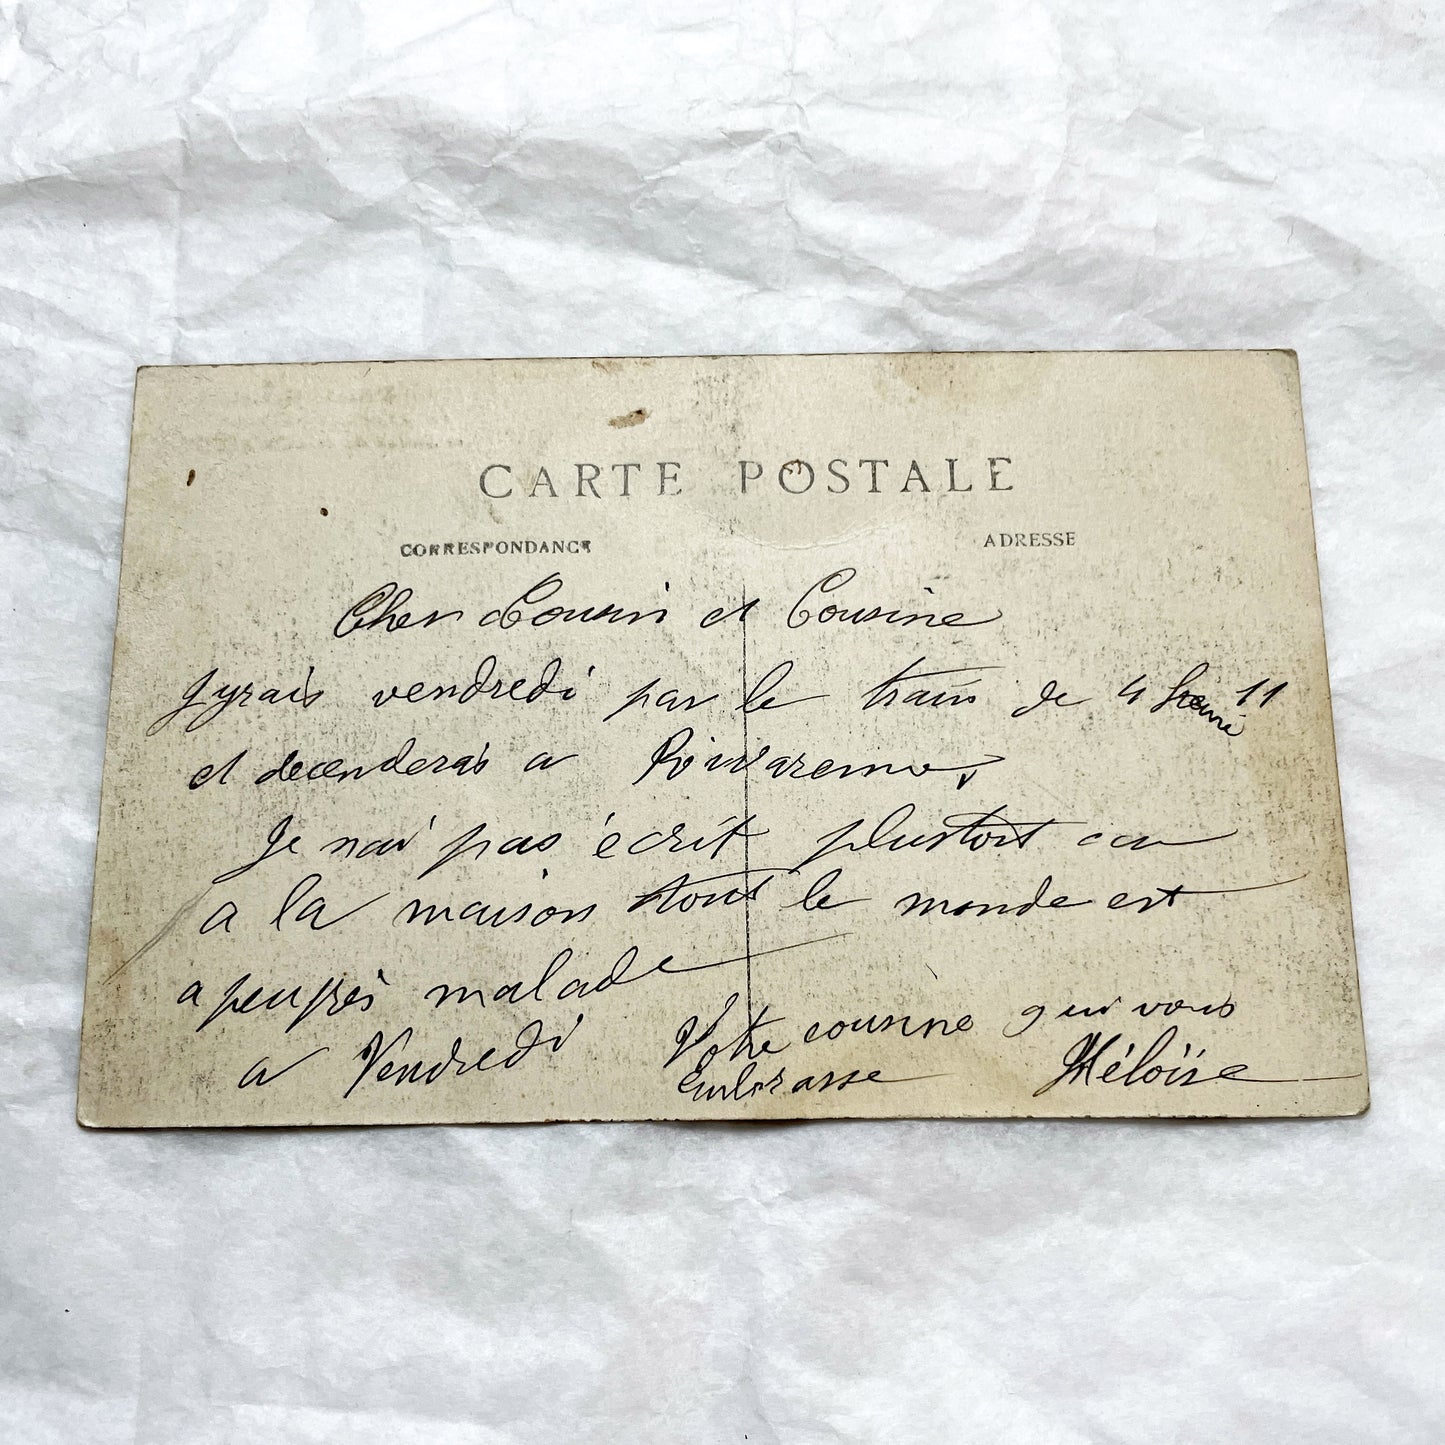 CARTE POSTALE
CORRESPONDANCE ADRESSE
Cher Cousin et Cousine
Jyrais vendredi par le train de 4 heure 11
et decenderais a
Je nai pas écrit plustort car
a la maison tout le monde est
a peuprés malade
a Vendredi
Votre cousine qui vous
Embrasse Héloïse